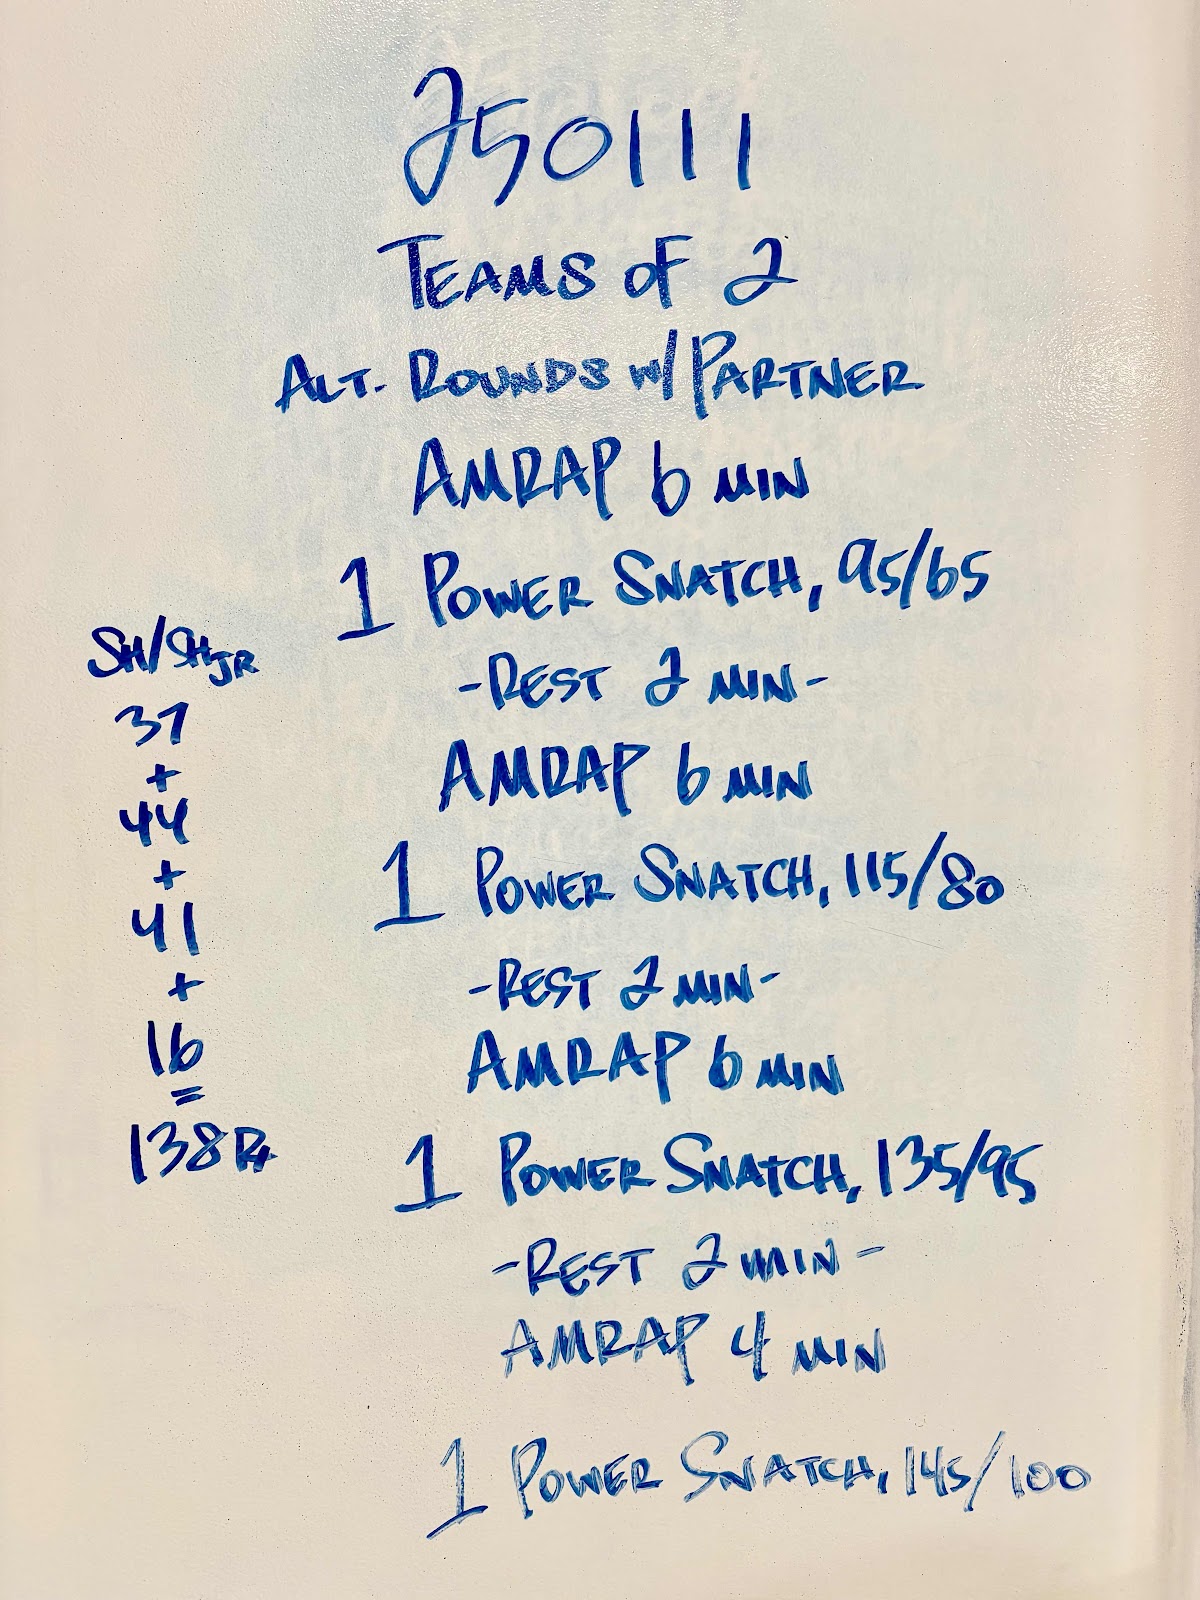 250111
TEAMS OF 2
ALT. ROUNDS W/ PARTNER
AMRAP 6 MIN
1 POWER SNATCH, 95/65
-REST 2 MIN-
AMRAP 6 MIN
1 POWER SNATCH, 115/80
-REST 2 MIN-
AMRAP 6 MIN
1 POWER SNATCH, 135/95
-REST 2 MIN-
AMRAP 4 MIN
1 POWER SNATCH, 145/100
SH/SHJR
37
+
44
+
41
+
16
=
138 Rx